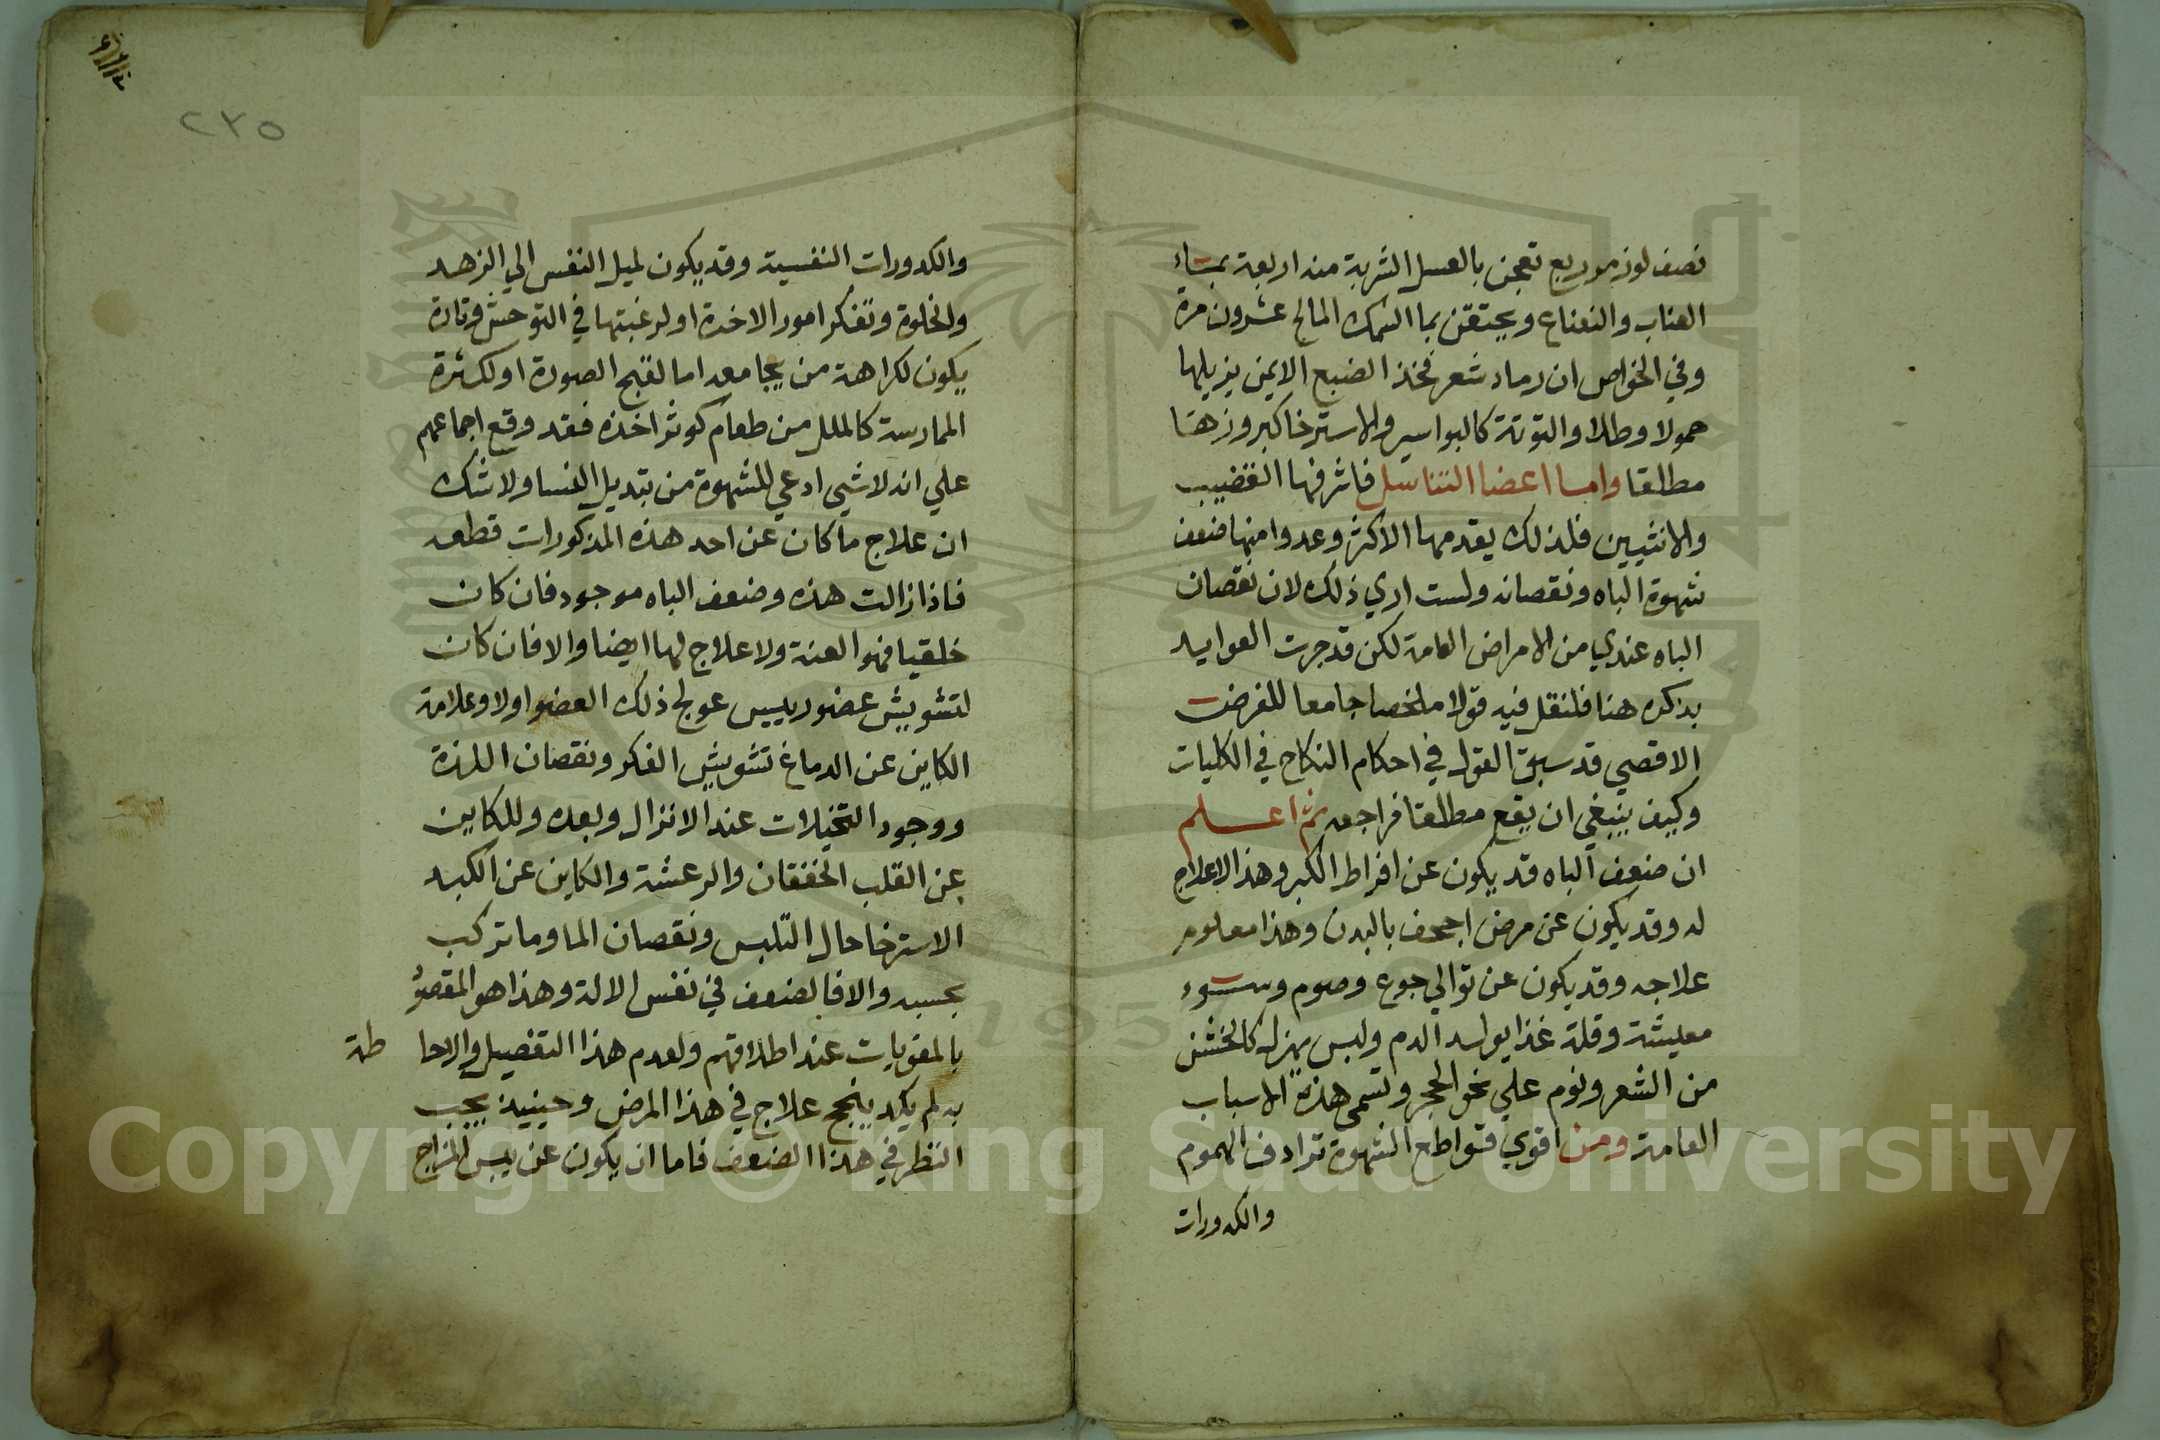 نصف لوز مر ربع تعجن بالعسل الشربة منه اربعة بماء
العناب والنعناع ويحتقن بما السمك المالح عشرون مرة
وفي الخواص ان رماد شعر فخذ الضبع الايمن يزيلها
حمولا وطلا والتوتة كالبواسير والاسترخا كبروزها
مطلقا واما اعضا التناسل فاشرفها القضيب
والانثيين فلذلك يقدمها الاكثر وعدوا منها ضعف
شهوة الباه ونقصانه ولست اري ذلك لان نقصان
الباه عندي من الامراض العامة لكن قد جرت العوايد
بذكره هنا فلنقل فيه قولا ملخصا جامعا للغرض
الاقصي قد سبق القول في احكام النكاح في الكليات
وكيف ينبغي ان يقع مطلقا فراجعه ثم اعلم
ان ضعف الباه قد يكون عن افراط الكبر وهذا لا علاج
له وقد يكون عن مرض اجحف بالبدن وهذا معلوم
علاجه وقد يكون عن توالي جوع وصوم وسوء
معيشة وقلة غذا يولد الدم ولبس يهزل كالخشن
من الشعر ونوم علي نحو الحجر وتسمي هذه الاسباب
العامة ومن اقوي قواطع الشهوة ترادف الهموم
والكدورات
٢٣٥
والكدورات النفسية وقد يكون لميل النفس الي الزهد
والخلوة وتفكر امور الاخرة او لرغبتها في التوحش وتارة
يكون لكراهة من يجامعه اما لقبح الصورة او لكثرة
الممارسة كالملل من طعام كوثر اخذه فقد وقع اجماعهم
علي انه لا شي ادعي للشهوة من تبديل النسا ولا شك
ان علاج ما كان عن احد هذه المذكورات قطعه
فاذا زالت هذه وضعف الباه موجود فان كان
خلقيا فهو العنة ولا علاج لها ايضا والا فان كان
لتشويش عضو رييس عولج ذلك العضو اولا وعلامة
الكاين عن الدماغ تشويش الفكر ونقصان اللذة
ووجود التخيلات عند الانزال وبعده وللكاين
عن القلب الخفقان والرعشة والكاين عن الكبد
الاسترخا حال التلبس ونقصان الما وما تركب
بحسبه والا فالضعف في نفس الالة وهذا هو المقصود
بالمقويات عند اطلاقهم ولعدم هذا التفصيل والاحا طة
به لم يكد ينجح علاج في هذا المرض وحينيذ يجب
النظر في هذا الضعف فاما ان يكون عن يبس المزاج
1957
Copyright © King Saud University